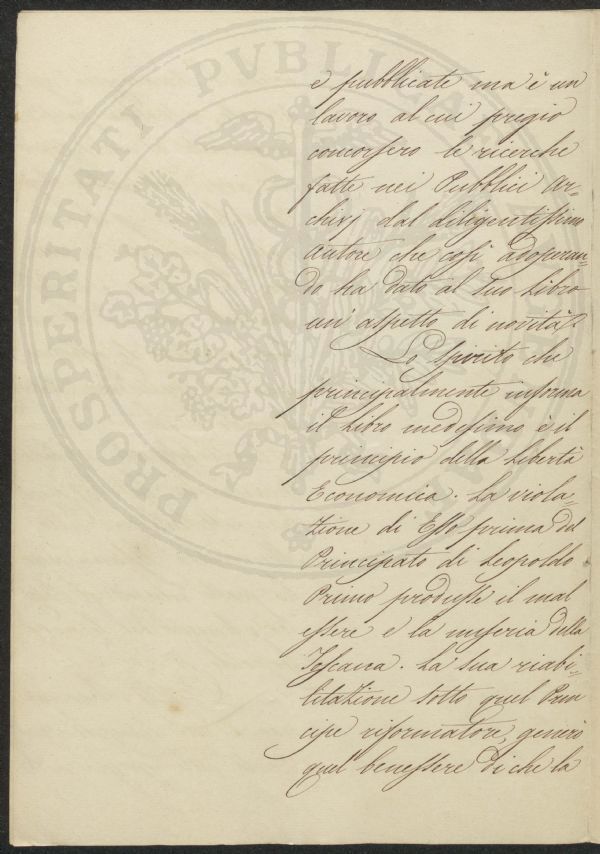 e pubblicate ma è un
lavoro al cui pregio
concorsero le ricerche
fatte nei Pubblici Ar=
chivj dal diligentissimo
Autore che così adoperan=
do ha dato al suo Libro
un' aspetto di novità.
Lo Spirito che
principalmente informa
il Libro medesimo è il
principio della Libertà
Economica. La viola=
zione di Esso prima del
Principato di Leopoldo
Primo produsse il mal
essere e la miseria della
Toscana. La sua riabi=
litazione sotto quel Prin
cipe riformatore, generò
quel benessere di che la
PROSPERITATI PVBLICAE